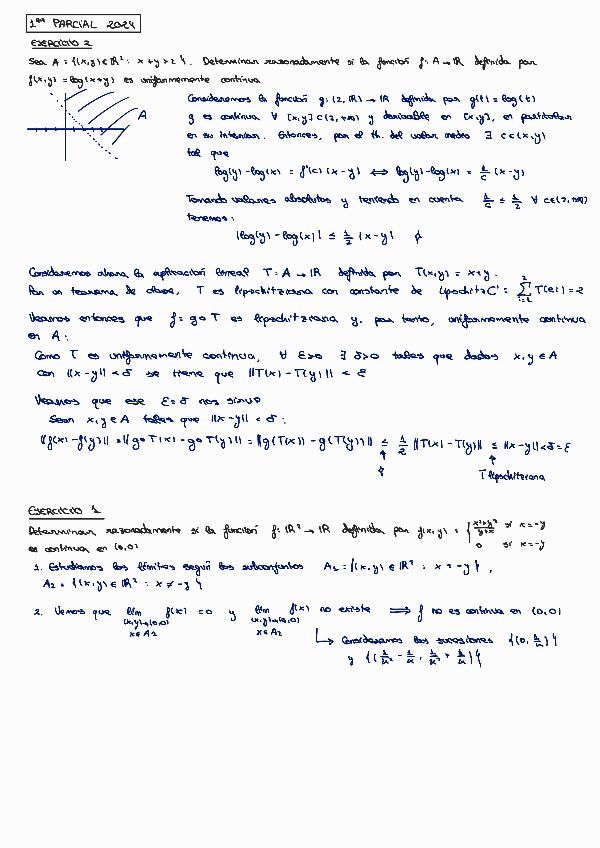 1er PARCIAL 2024
EJERCICIO 2
Sea A = {(x,y) ∈ ℝ² : x+y > 2}. Determinar razonadamente si la función f: A → ℝ definida por
f(x,y) = log(x+y) es uniformemente continua
A
Consideremos la función g: (2,ℝ) → ℝ definida por g(t) = log(t)
g es continua ∀ [x,y] ⊂ (2,+∞) y derivable en [x,y], en particular
en su interior. Entonces, por el th. del valor medio ∃ c ∈ (x,y)
tal que
log(y) - log(x) = f'(c)(x-y) ⟺ log(y) - log(x) = 1/c (x-y)
Tomando valores absolutos y teniendo en cuenta 1/c ≤ 1/2 ∀ c∈(2,+∞)
tenemos:
|log(y) - log(x)| ≤ 1/2 |x-y|
Consideremos ahora la aplicación lineal T: A → ℝ definida por T(x,y) = x+y.
Por un teorema de clase, T es lipschitziana con constante de Lipschitz C = Σ_{i=1}^{2} T(ei) = 2
Veamos entonces que f = g∘T es lipschitziana y, por tanto, uniformemente continua
en A:
Como T es uniformemente continua, ∀ ε>0 ∃ δ>0 tales que dados x,y ∈ A
con ||x-y|| < δ se tiene que ||T(x) - T(y)|| < ε
Veamos que ese ε=δ nos sirve
Sean x,y ∈ A tales que ||x-y|| < δ:
||f(x) - f(y)|| = ||g∘T(x) - g∘T(y)|| = ||g(T(x)) - g(T(y))|| ≤ 1/2 ||T(x) - T(y)|| ≤ ||x-y|| < δ = ε
T lipschitziana
EJERCICIO 1
Determinar razonadamente si la función f: ℝ² → ℝ definida por f(x,y) = { (x²+y²)/(y+x) si x=-y
0 si x=-y
es continua en (0,0)
1. Estudiamos los límites según los subconjuntos A1 = {(x,y) ∈ ℝ² : x = -y},
A2 = {(x,y) ∈ ℝ² : x ≠ -y}
2. Vemos que lim f(x) = 0 y lim f(x) no existe ⟹ f no es continua en (0,0)
(x,y)→(0,0) (x,y)→(0,0)
x∈A2 x∈A2
Consideramos las sucesiones {(0, 1/n)}
y {(1/n² - 1/n, 1/n² + 1/n)}